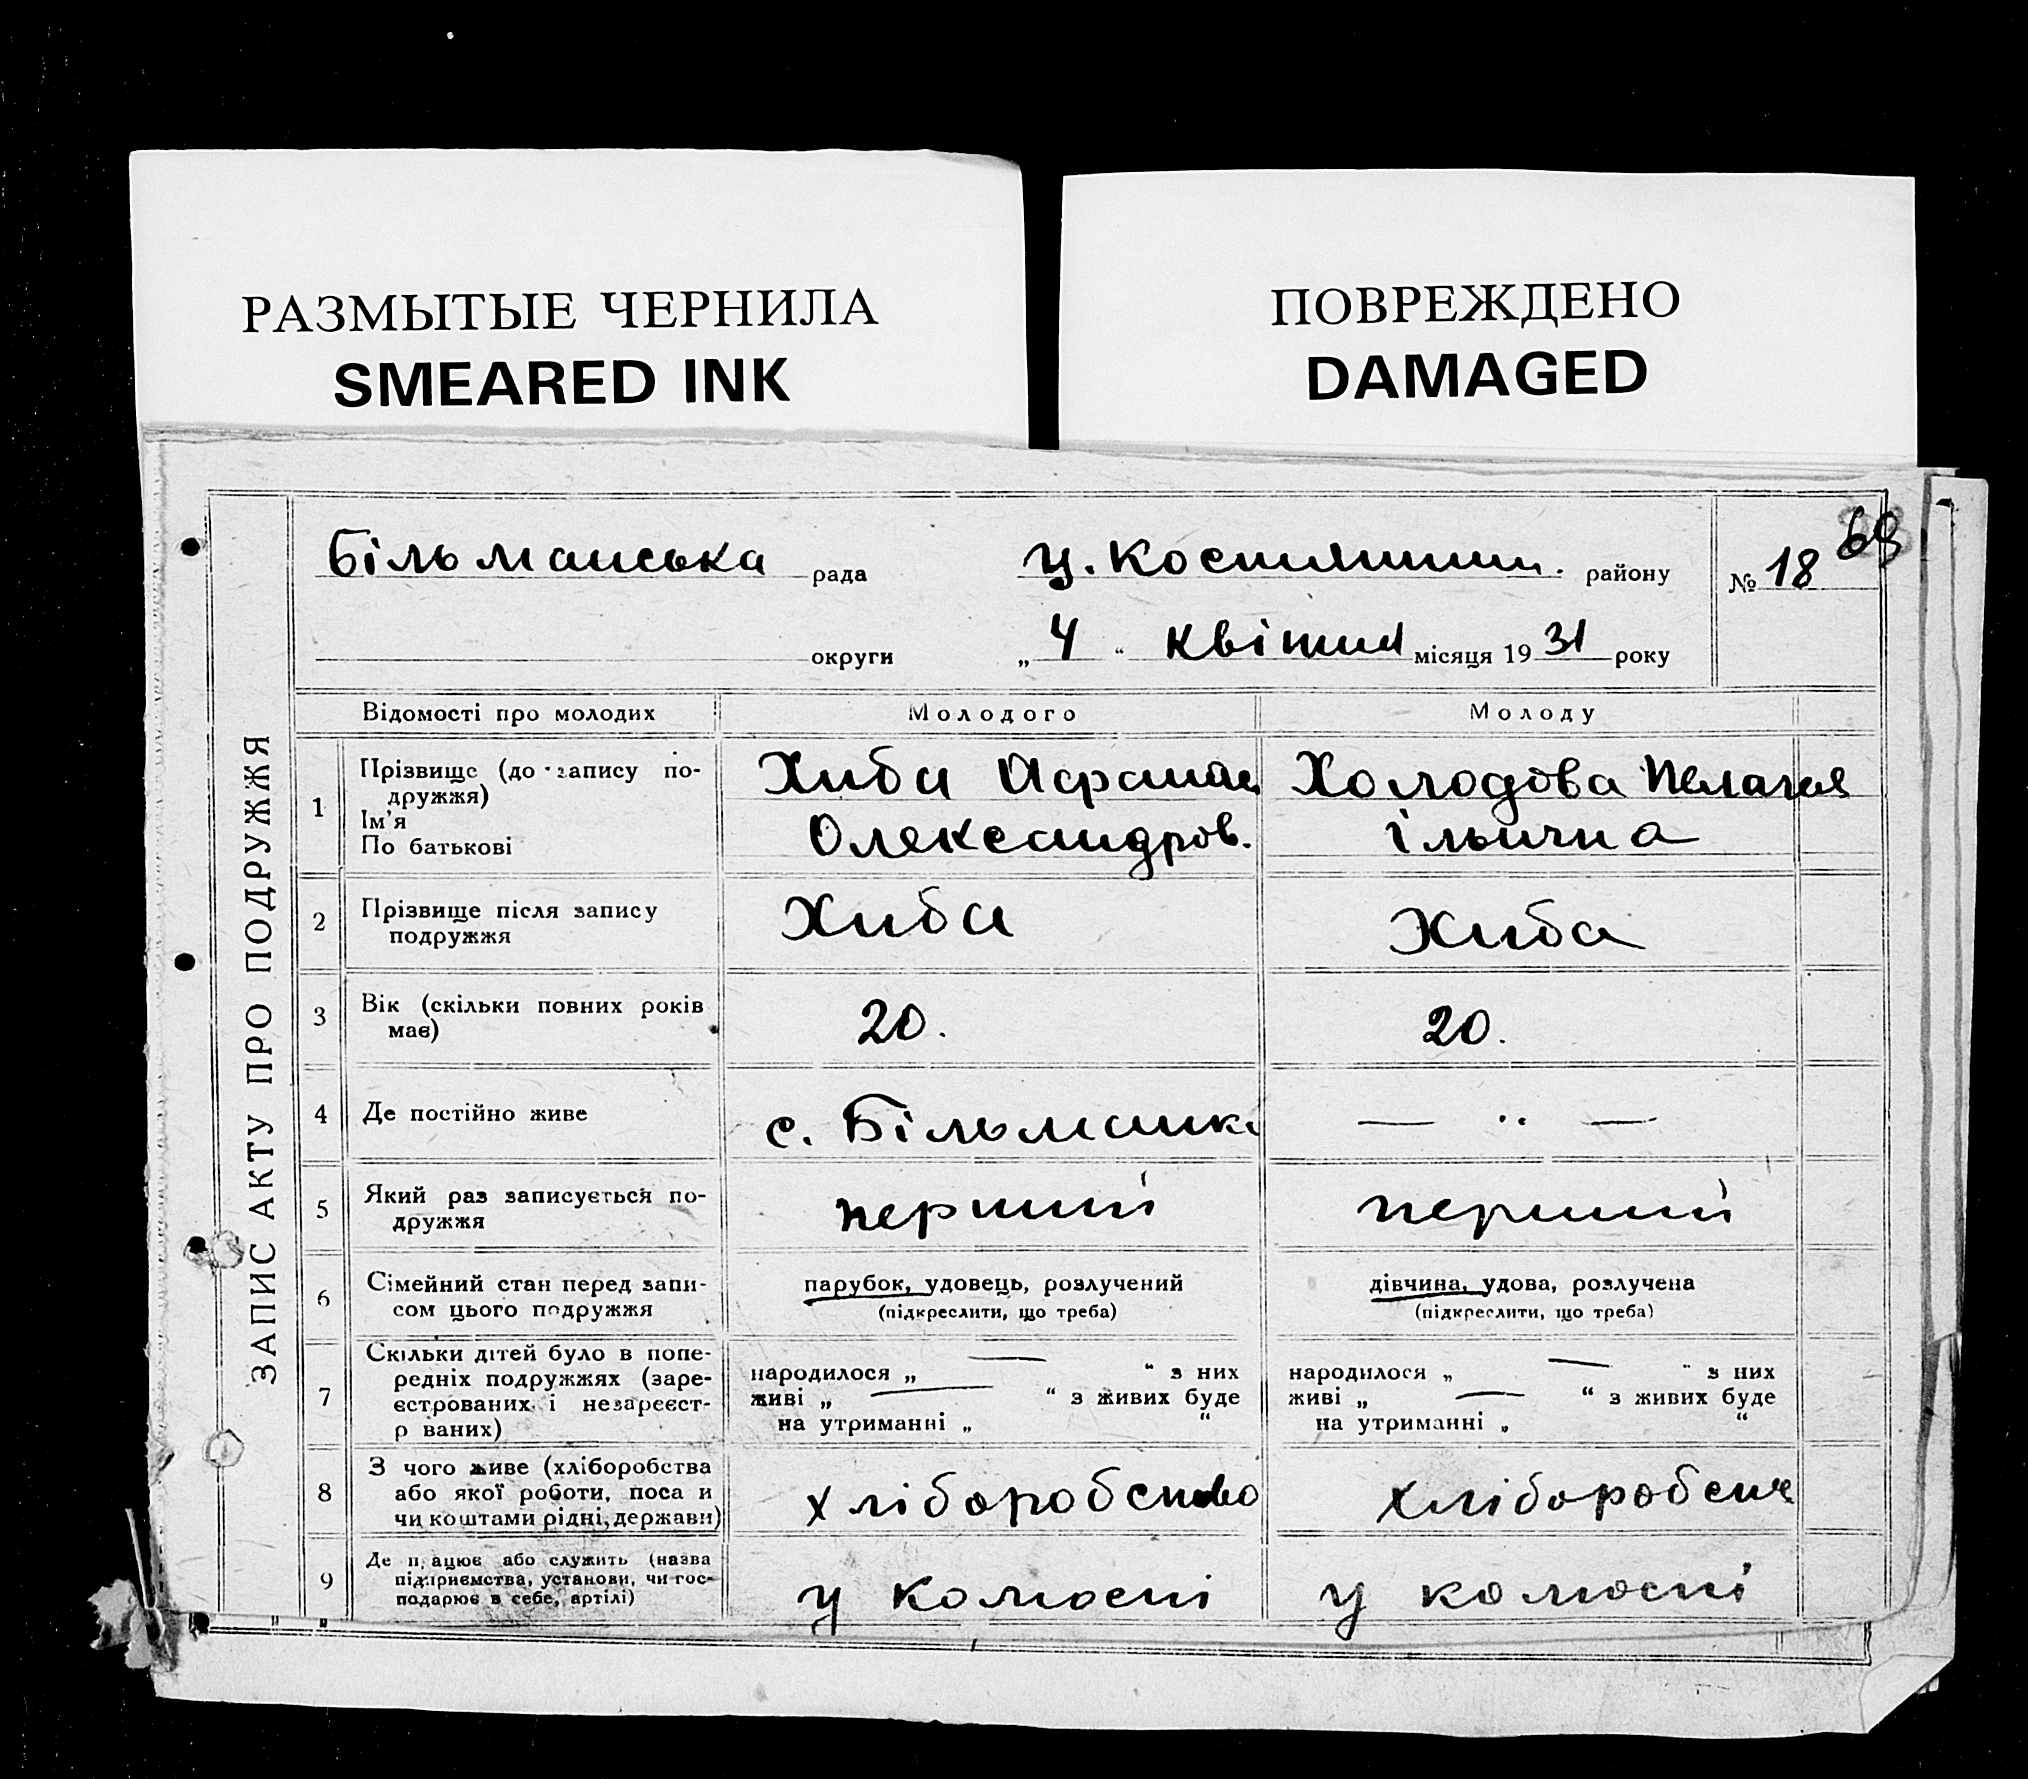 РАЗМЫТЫЕ ЧЕРНИЛА
SMEARED INK
ПОВРЕЖДЕНО
DAMAGED
69
Більманська рада Ц. району № 18
округи „ 4 “ квітня місяця 1931 року
ЗАПИС АКТУ ПРО ПОДРУЖЖЯ
Відомості про молодих Молодого Молоду
1 Прізвище (до запису по-
дружжя)
Ім'я
По батькові
Хиба
Олександров.
Холодова Пелагея
Ільична
2 Прізвище після запису
подружжя
Хиба
Хиба
3 Вік (скільки повних років
має)
20.
20.
4 Де постійно живе
с. Більманка
— ·· —
5 Який раз записується по-
дружжя
перший
перший
6 Сімейний стан перед запи-
сом цього подружжя
парубок, удовець, розлучений
(підкреслити, що треба)
дівчина, удова, розлучена
(підкреслити, що треба)
7 Скільки дітей було в попе-
редніх подружжях (заре-
єстрованих і незареєст-
р ваних)
народилося „ — “ з них
живі „ — “ з живих буде
на утриманні „ “
народилося „ — “ з них
живі „ — “ з живих буде
на утриманні „ “
8 З чого живе (хліборобства
або якої роботи, поса и
чи коштами рідні, держави)
хліборобство
хліборобств
9 Де п ацює або служить (назва
підприємства, установи, чи гос-
подарює в себе, артілі)
у колгоспі
у колгоспі